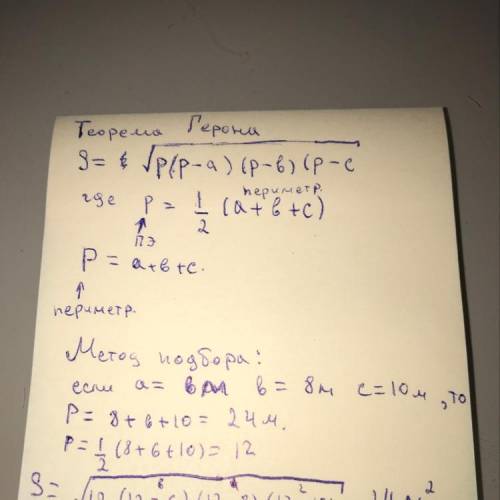 Теорема Герона
S= √p(p-a)(p-в)(p-c
периметр.
где p = 1/2 (a+в+c)
ПЭ
P = a+в+c.
периметр.
Метод подбора:
если a= 6м в= 8м c=10м, то
P= 8+6+10= 24м.
P=1/2(8+6+10)= 12
S=